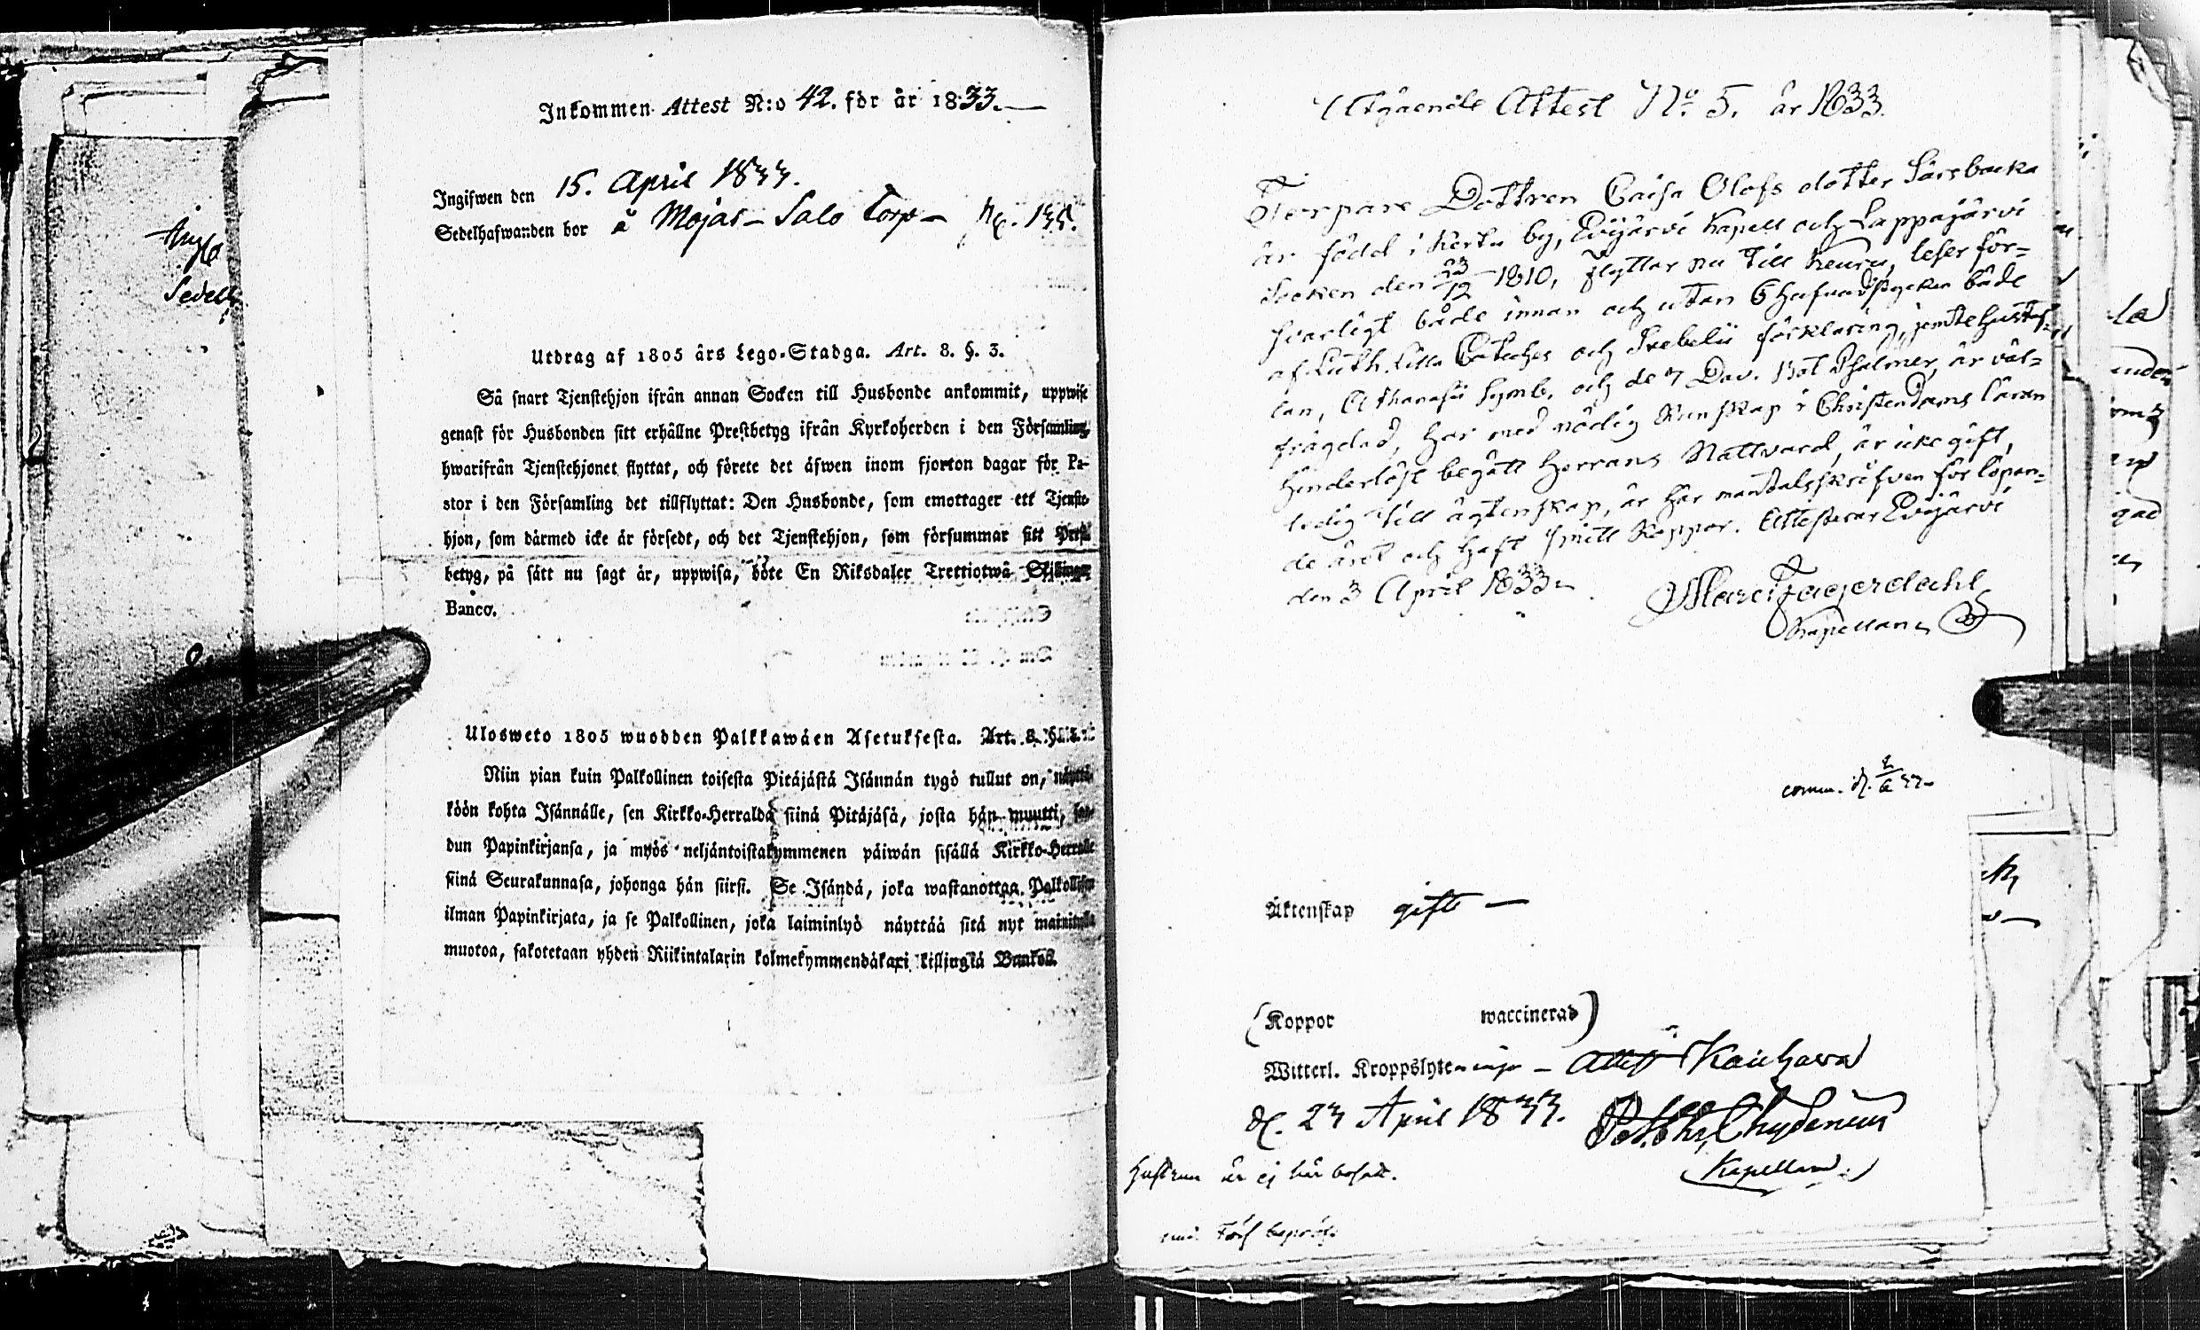 Inkommen Attest N:o 42. för år 1833.
Ingifwen den 15. April 1833.
Sedelhafwanden bor å Mojas-Salo Torp - pag. 135.
Utdrag af 1805 års Lego-Stadga. Art. 8. §. 3.
Så snart Tjenstehjon ifrån annan Socken till Husbonde ankommit, uppwise
genast för Husbonden sitt erhållne Prestbetyg ifrån Kyrkoherden i den Församling,
hwarifrån Tjenstehjonet flyttat, och förete det äfwen inom fjorton dagar för Pa-
stor i den Församling det tillflyttat: Den Husbonde, som emottager ett Tjenste-
hjon, som därmed icke är försedt, och det Tjenstehjon, som försummar sitt Prest-
betyg, på sätt nu sagt är, uppwisa, böte En Riksdaler Trettiotwå Skillingar
Banco.
Ulosweto 1805 wuodden Palkkawäen Asetuksesta. Art. 8. §. 3.
Niin pian kuin Palkollinen toisesta Pitäjästä Isännän tygö tullut on, näyttä-
köön kohta Isännälle, sen Kirkko-Herralda siinä Pitäjäsä, josta hän muutti, saa-
dun Papinkirjansa, ja myös neljäntoistakymmenen päiwän sisällä Kirkko-Herralle
siinä Seurakunnasa, johonga hän siirsi. Se Isändä, joka wastanottaa Palkollisen
ilman Papinkirjata, ja se Palkollinen, joka laiminlyö näyttää sitä nyt mainitulla
muotoa, sakotetaan yhden Riikintalarin kolmekymmendäkaxi killingiä Bankos.
Sedell
Utgående Attest No. 5. år 1833.
Torpare Dottren Caisa Olofs dotter Särsbacka
är född i Kertu by, Evijärvi Kapell och Lappajärvi
Socken den 23/12 1810, flyttar nu till Keuru, läser för-
svarligt både innan och utan 6 hufvudstycken både
af Luth. Lilla Cateches och Svebelii förklaring, jemte Hustaf-
lan, Athanasii Symb. och de 7 Dav. Bot Psalmer, är väl-
frägdad, har med nödig Kunskap i Christendoms läran
hinderlöst begått Herrans Nattvard, är icke gift,
ledig till ägtenskap, är här mantalsskrifven för löpan-
de året och haft Koppor. Attesterar Evijärvi
den 3 April 1833.
Fagerdahl
Kapellan
comm. d. 2/6 33
Äktenskap gift
(Koppor waccinerad)
Witterl. Kroppslyte inga - Attest. Kauhava
d. 23 April 1833. Pet. Chr. Chydenius
Kapellan.
Hustrun är ej här bosatt.